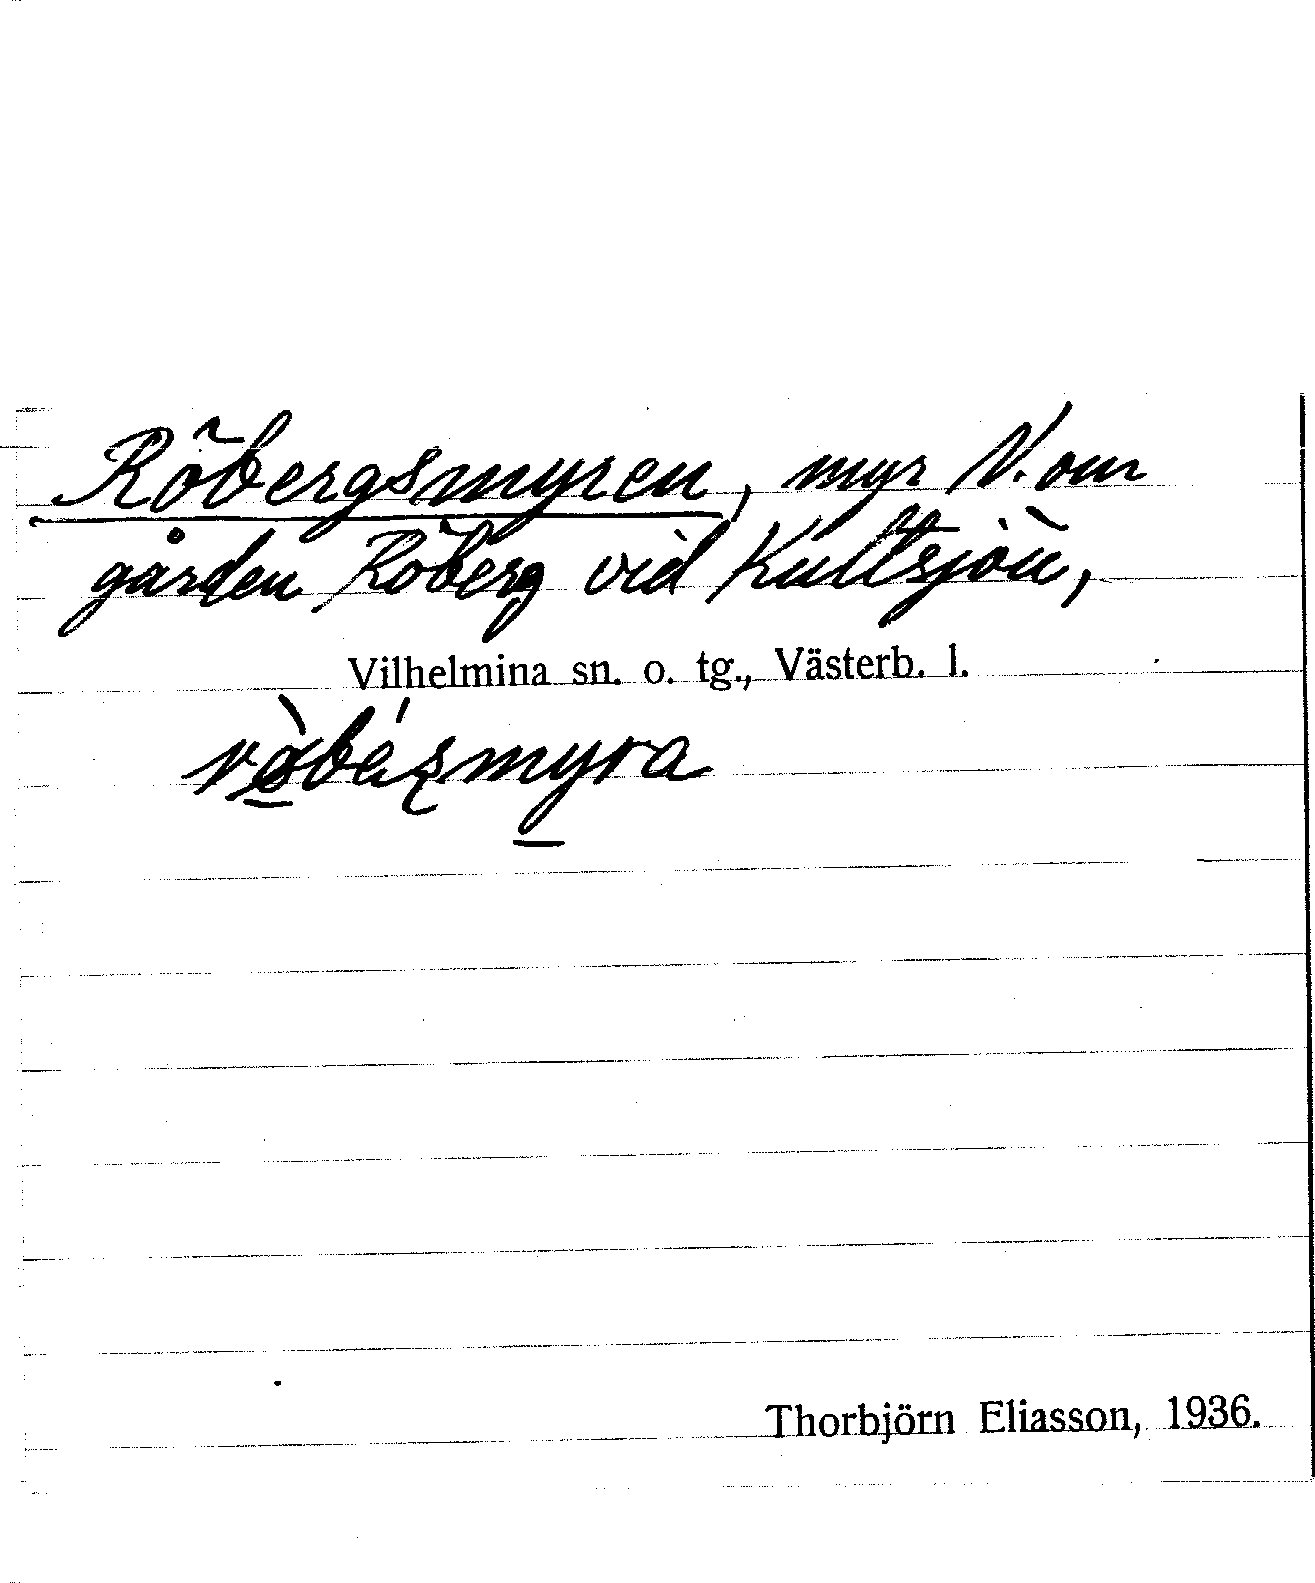 Röbergsmyren, myr N. om
gården Röberg vid Kultsjön,
Vilhelmina sn. o. tg., Västerb. l.
Thorbjörn Eliasson, 1936.